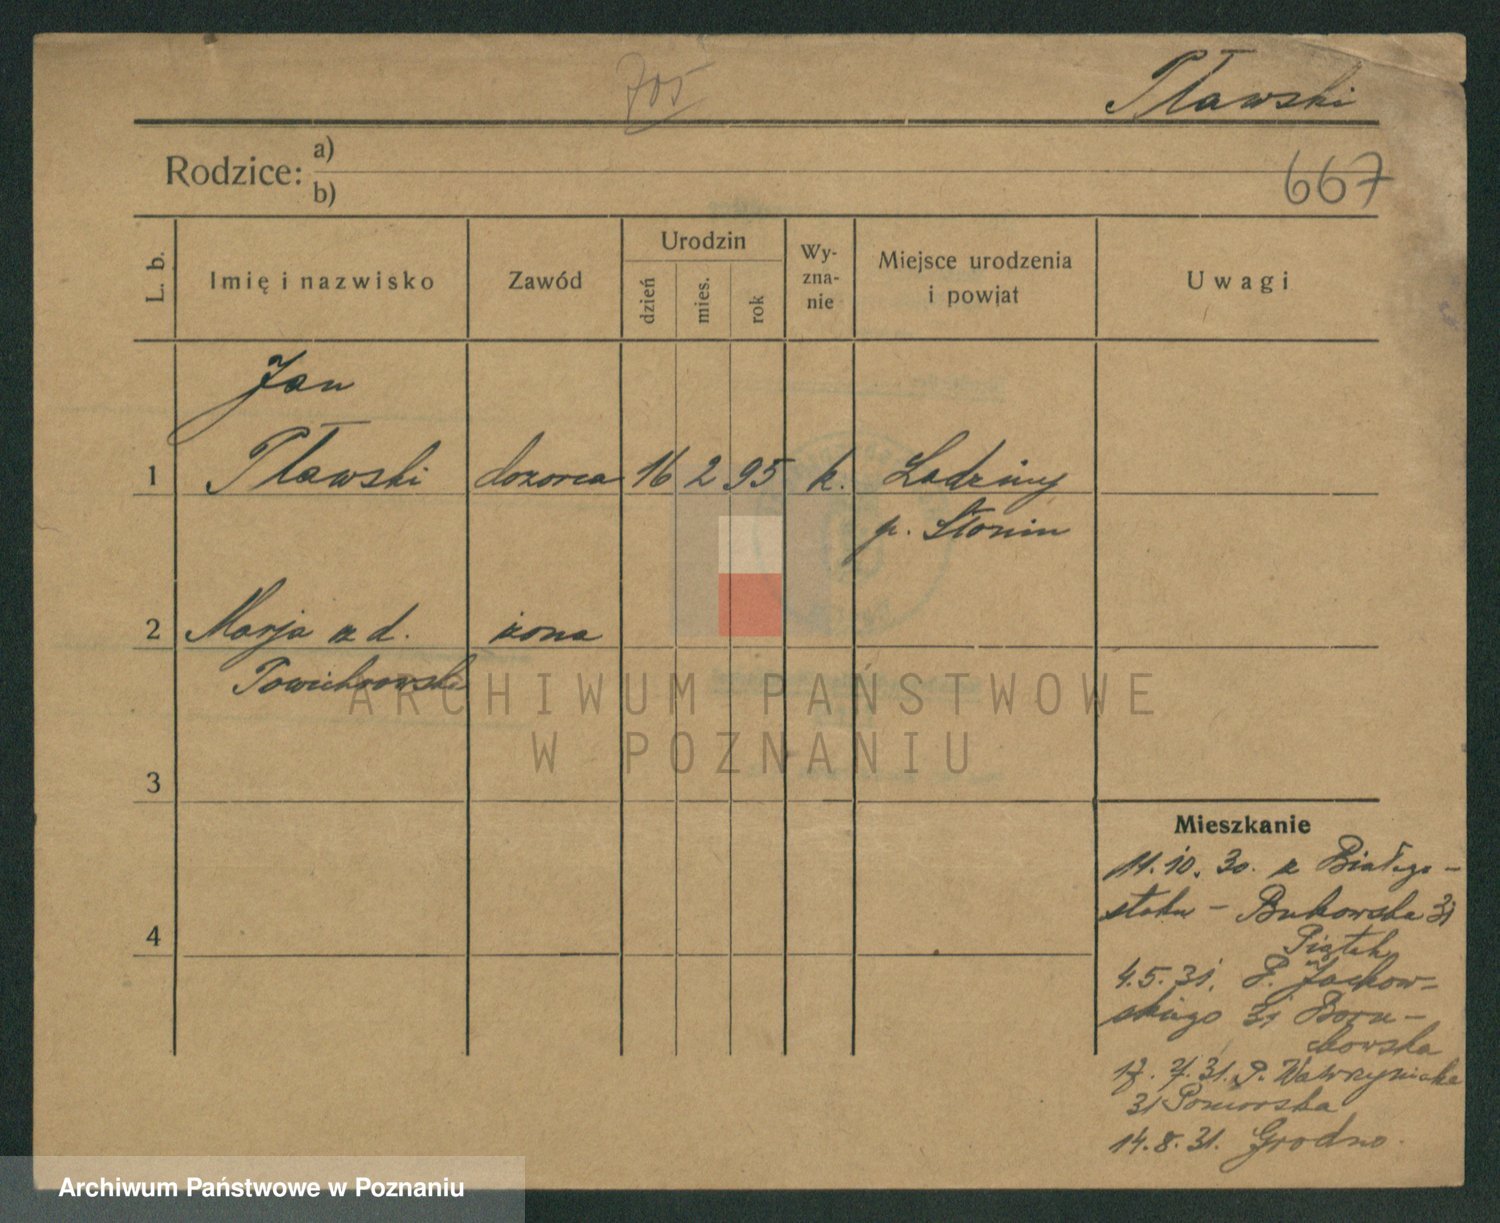 705
Pławski
Rodzice: a)
b)
667
L. b.
Imię i nazwisko
Zawód
Urodzin
dzień
mies.
rok
Wy-
zna-
nie
Miejsce urodzenia
i powiat
Uwagi
Jan
1 Pławski dozorca 16 2 95 k.
p. Słonim
2 Marja z d. żona
3
4
Mieszkanie
11.10.30. z Białego-
stoku - Bukowska 31
Piątek
4.5.31. P. Jackow-
skiego 31 Boru-
chowska
31 Pomorska
14.8.31. Grodno.
ARCHIWUM PAŃSTWOWE
W POZNANIU
Archiwum Państwowe w Poznaniu